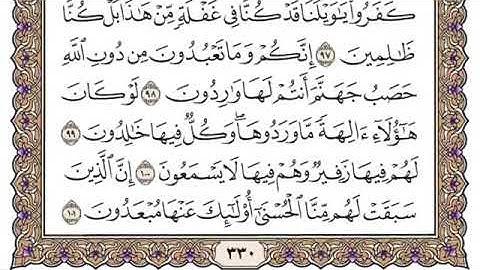 كَفَرُوا۟ يَـٰوَيْلَنَا قَدْ كُنَّا فِى غَفْلَةٍ مِّنْ هَـٰذَا بَلْ كُنَّا
ظَـٰلِمِينَ ٩٧ إِنَّكُمْ وَمَا تَعْبُدُونَ مِن دُونِ ٱللَّهِ
حَصَبُ جَهَنَّمَ أَنتُمْ لَهَا وَٰرِدُونَ ٩٨ لَوْ كَانَ
هَـٰٓؤُلَآءِ ءَالِهَةً مَّا وَرَدُوهَا ۖ وَكُلٌّ فِيهَا خَـٰلِدُونَ ٩٩
لَهُمْ فِيهَا زَفِيرٌ وَهُمْ فِيهَا لَا يَسْمَعُونَ ١٠٠ إِنَّ ٱلَّذِينَ
سَبَقَتْ لَهُم مِّنَّا ٱلْحُسْنَىٰٓ أُو۟لَـٰٓئِكَ عَنْهَا مُبْعَدُونَ ١٠١
٣٣٠